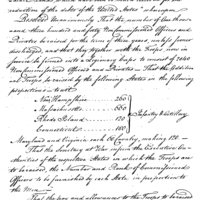 reduction of the debt of the United States whereupon
Resolved Unanimously That the number of One thous-
and and three hundred and forty Noncommissioned Officers and
Privates be raised for the term of three years, unless sooner
discharged, and that they together with the Troops now in
Service, be formed into a legionary Corps to consist of 2040
Noncommissioned Officers and Privates. That the addition-
al Troops be raised by the following States in the following
proportions to wit
New Hampshire . . . 260
Massachusetts . . . 660
Rhode Island . . . 120 Infantry & Artillery
Connecticut . . . 180
Maryland and Virginia each 60 Cavalry, making 120. —
That the Secretary at War inform the Executive Au-
thorities of the respective States in which the Troops are
to be raised, the Number and Rank of Commissioned
Officers to be furnished by each State, in proportion to
the Men —
That the pay and allowance to the Troops to be raised